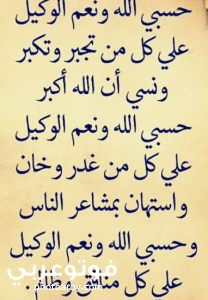 حسبي الله ونعم الوكيل
علي كل من تجبر وتكبر
ونسي أن الله أكبر
حسبي الله ونعم الوكيل
علي كل من غدر وخان
واستهان بمشاعر الناس
وحسبي الله ونعم الوكيل
علي كل
فوتو عربي